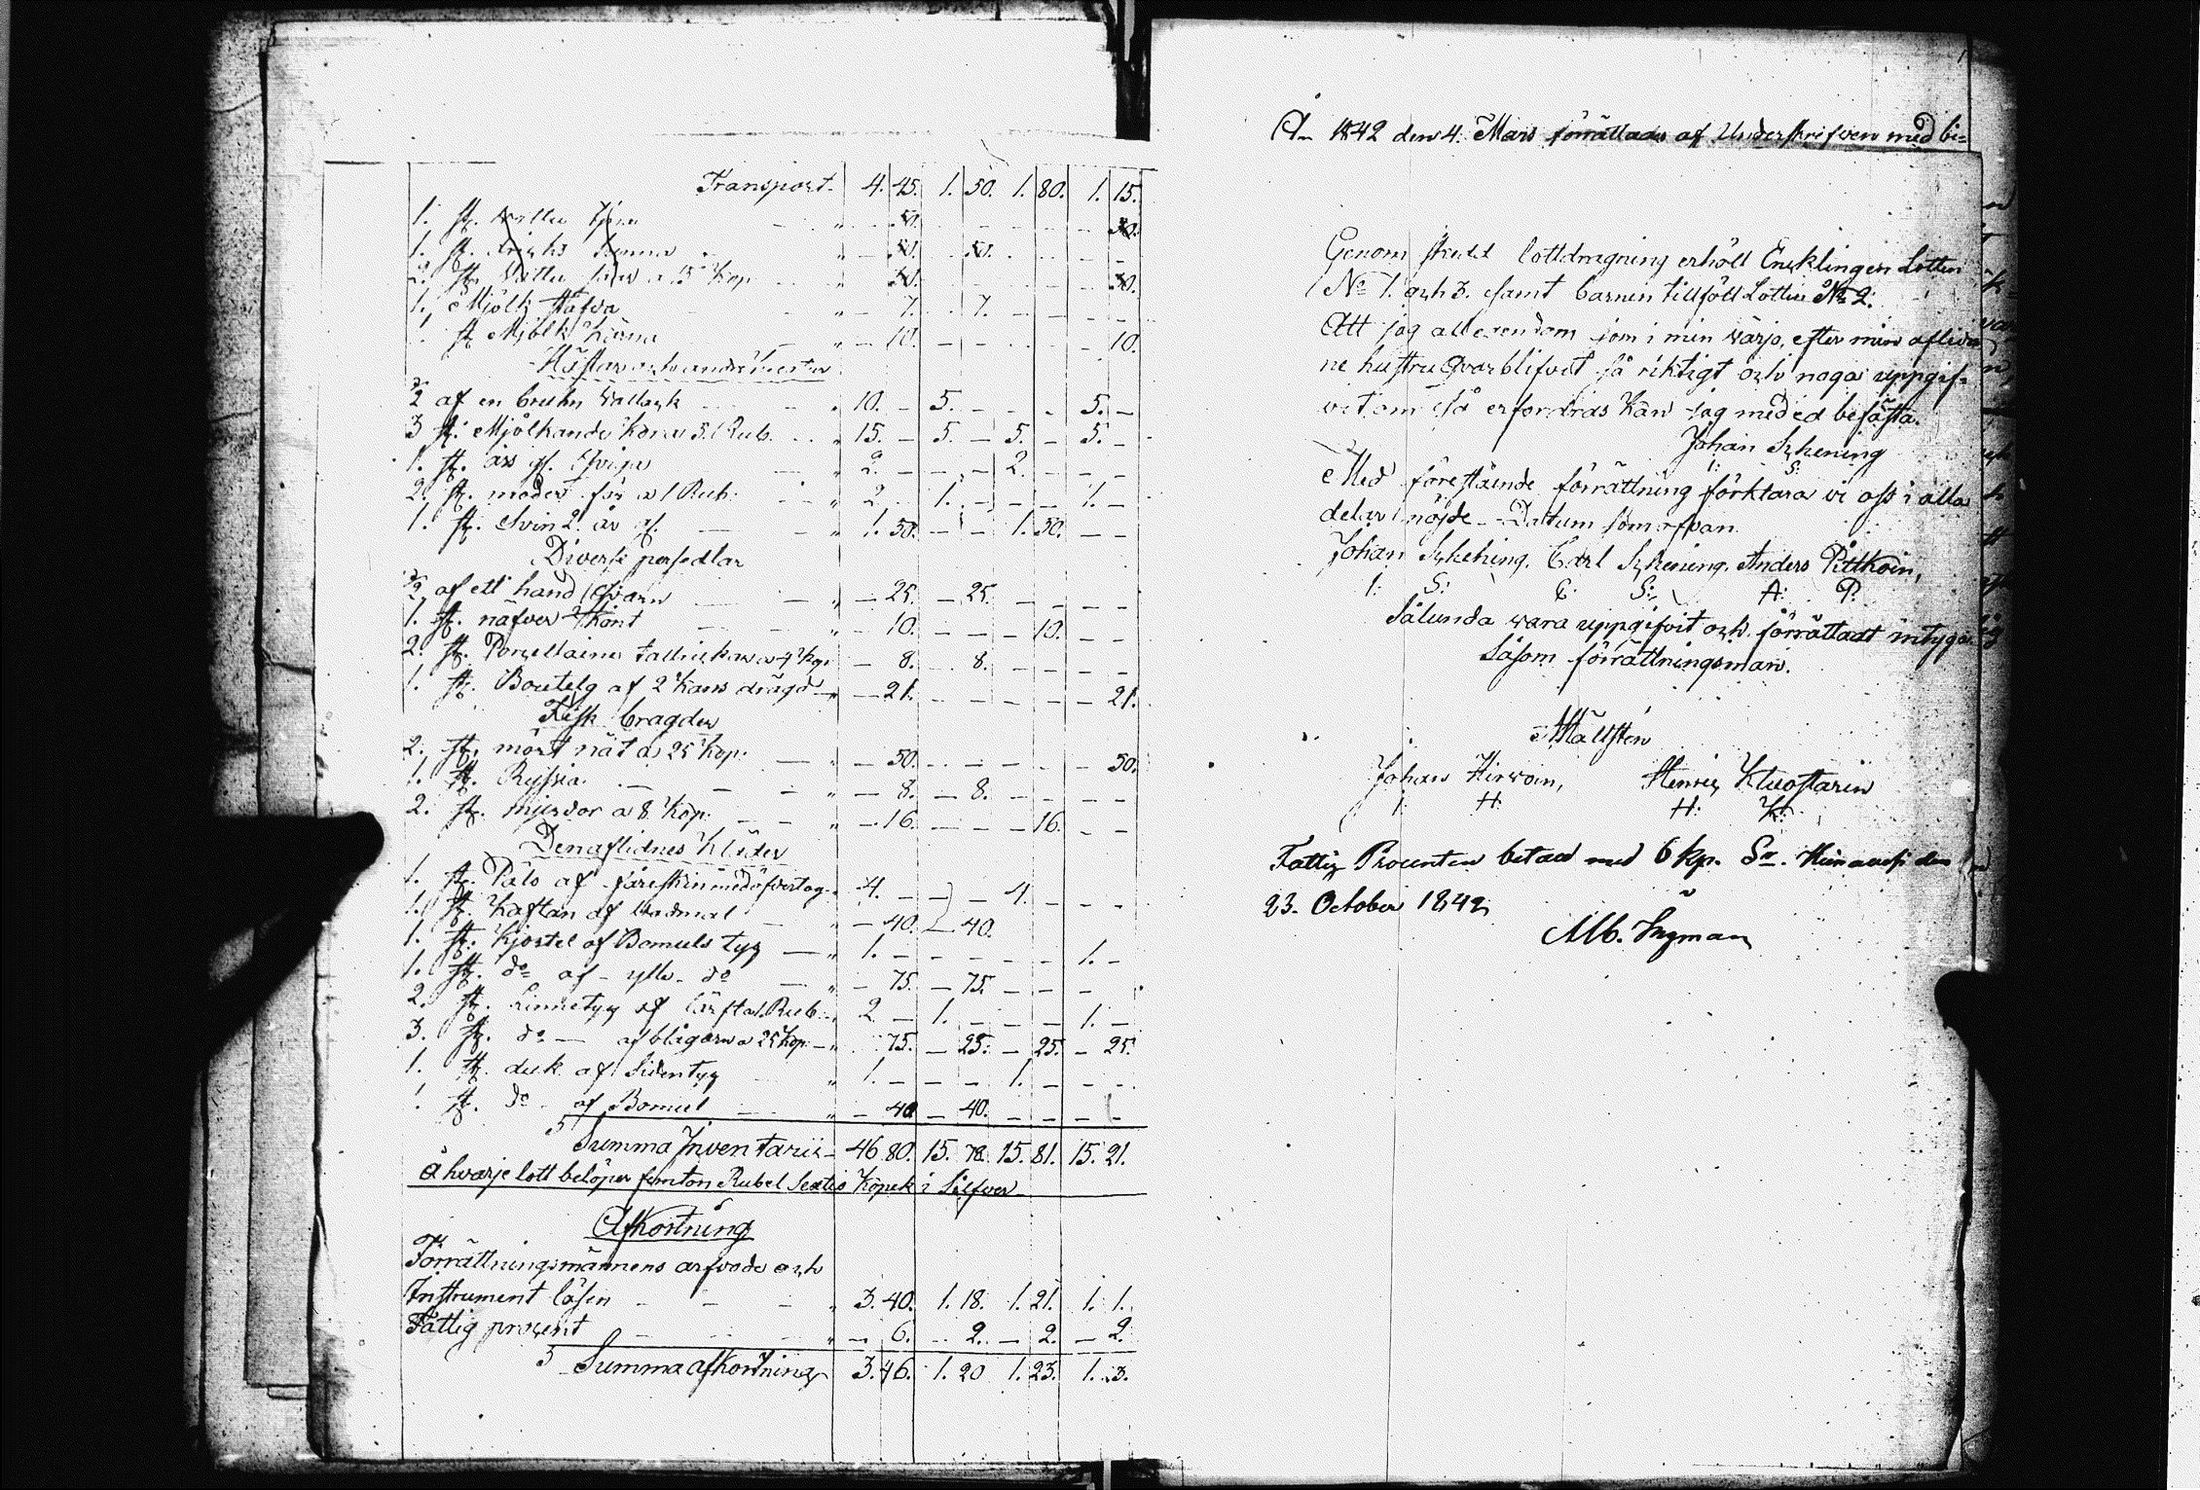 Transport. 4. 45. 1. 50. 1. 80. 1. 15.
1. st. 50. 50.
1. st. 50. 50.
2. st. a 15 Kop 30. 30.
1. Mjölk 7. 7.
1. st Mjölk Kärna 10. 10.
Hästar och andre
1/2 af en bruhn Wallack 10. 5. 5.
3 st. Mjölkande Kor a 5. Rub. 15. 5. 5. 5.
1. st. års gl. qviga 2. 2.
2. st. moder får a 1 Rub. 2. 1. 1.
1. st. Svin 2. år gl. 1. 50. 1. 50.
Diverse persedlar
1/2 af ett hand qvarn 25. 25.
1. st. näfver Könt 10. 10.
2. st. Porcellaine tallrickar a 4 Kop 8. 8.
1. st. Boutelg af 2 Kans drägd 21. 21.
Fisk bragder
2. st. mört nät a 25 Kop. 50. 50.
1. st. Ryssia 8. 8.
2. st. mjerdor a 8 Kop. 16. 16.
Den aflidnes Kläder
1. st. Päls af fåreskin med öfvertag 4. 4.
1. st. Kaftan af Wadmal 40. 40.
1. st. Kjortel af Bomuls tyg 1. 1.
1. st. do af ylle do 75. 75.
2. st. Linnetyg af lärft a 1. Rub. 2 1. 1.
3. st. do af blågarn a 25 Kop. 75. 25. 25. 25.
1. st. duk af Sidentyg 1. 1.
1. st. do af Bomul 40 40.
Summa Inventarii 46 80. 15. 78. 15. 81. 15. 21.
å hvarje lott belöper femton Rubel Sextio Kopek i Silfver
Afkortning
Förrättningsmännens arfvode och
Instrument lösen 3. 40. 1. 18. 1. 21. 1. 1.
Fattig procent 6. 2. 2. 2.
Summa afkortning 3. 46. 1. 20 1. 23. 1. 3.
År 1842 den 4. Mars förrättades af Underskrifven med bi=
Genom skedd lottdragning erhölt Encklingen Lotten
No 1. och 3. samt barnen tillföll Lotten No 2.
Att jag all egendom som i min wärjo, efter min aflid
ne hustru qvarblifvit så riktigt och noga uppgif=
vit om så erfordras kan jag med ed befästa.
Johan Schening
I: S:
Med föreståënde förrättning förklara vi oss i alla
delar nöjde Datum som ofvan
Johan Schening. Carl Schening. Anders Pittkoin,
I: S: C: S: A: P:
Sålunda wara uppgifvit och förrättadt intyga
Såsom förrättningsman.
Mällsten
Johan Hirvoin, Henric Kluostarin
I: H: H: K:
Fattig Procenten betald med 6 kp. Sr. den
23. October 1842
Alb. Ingman